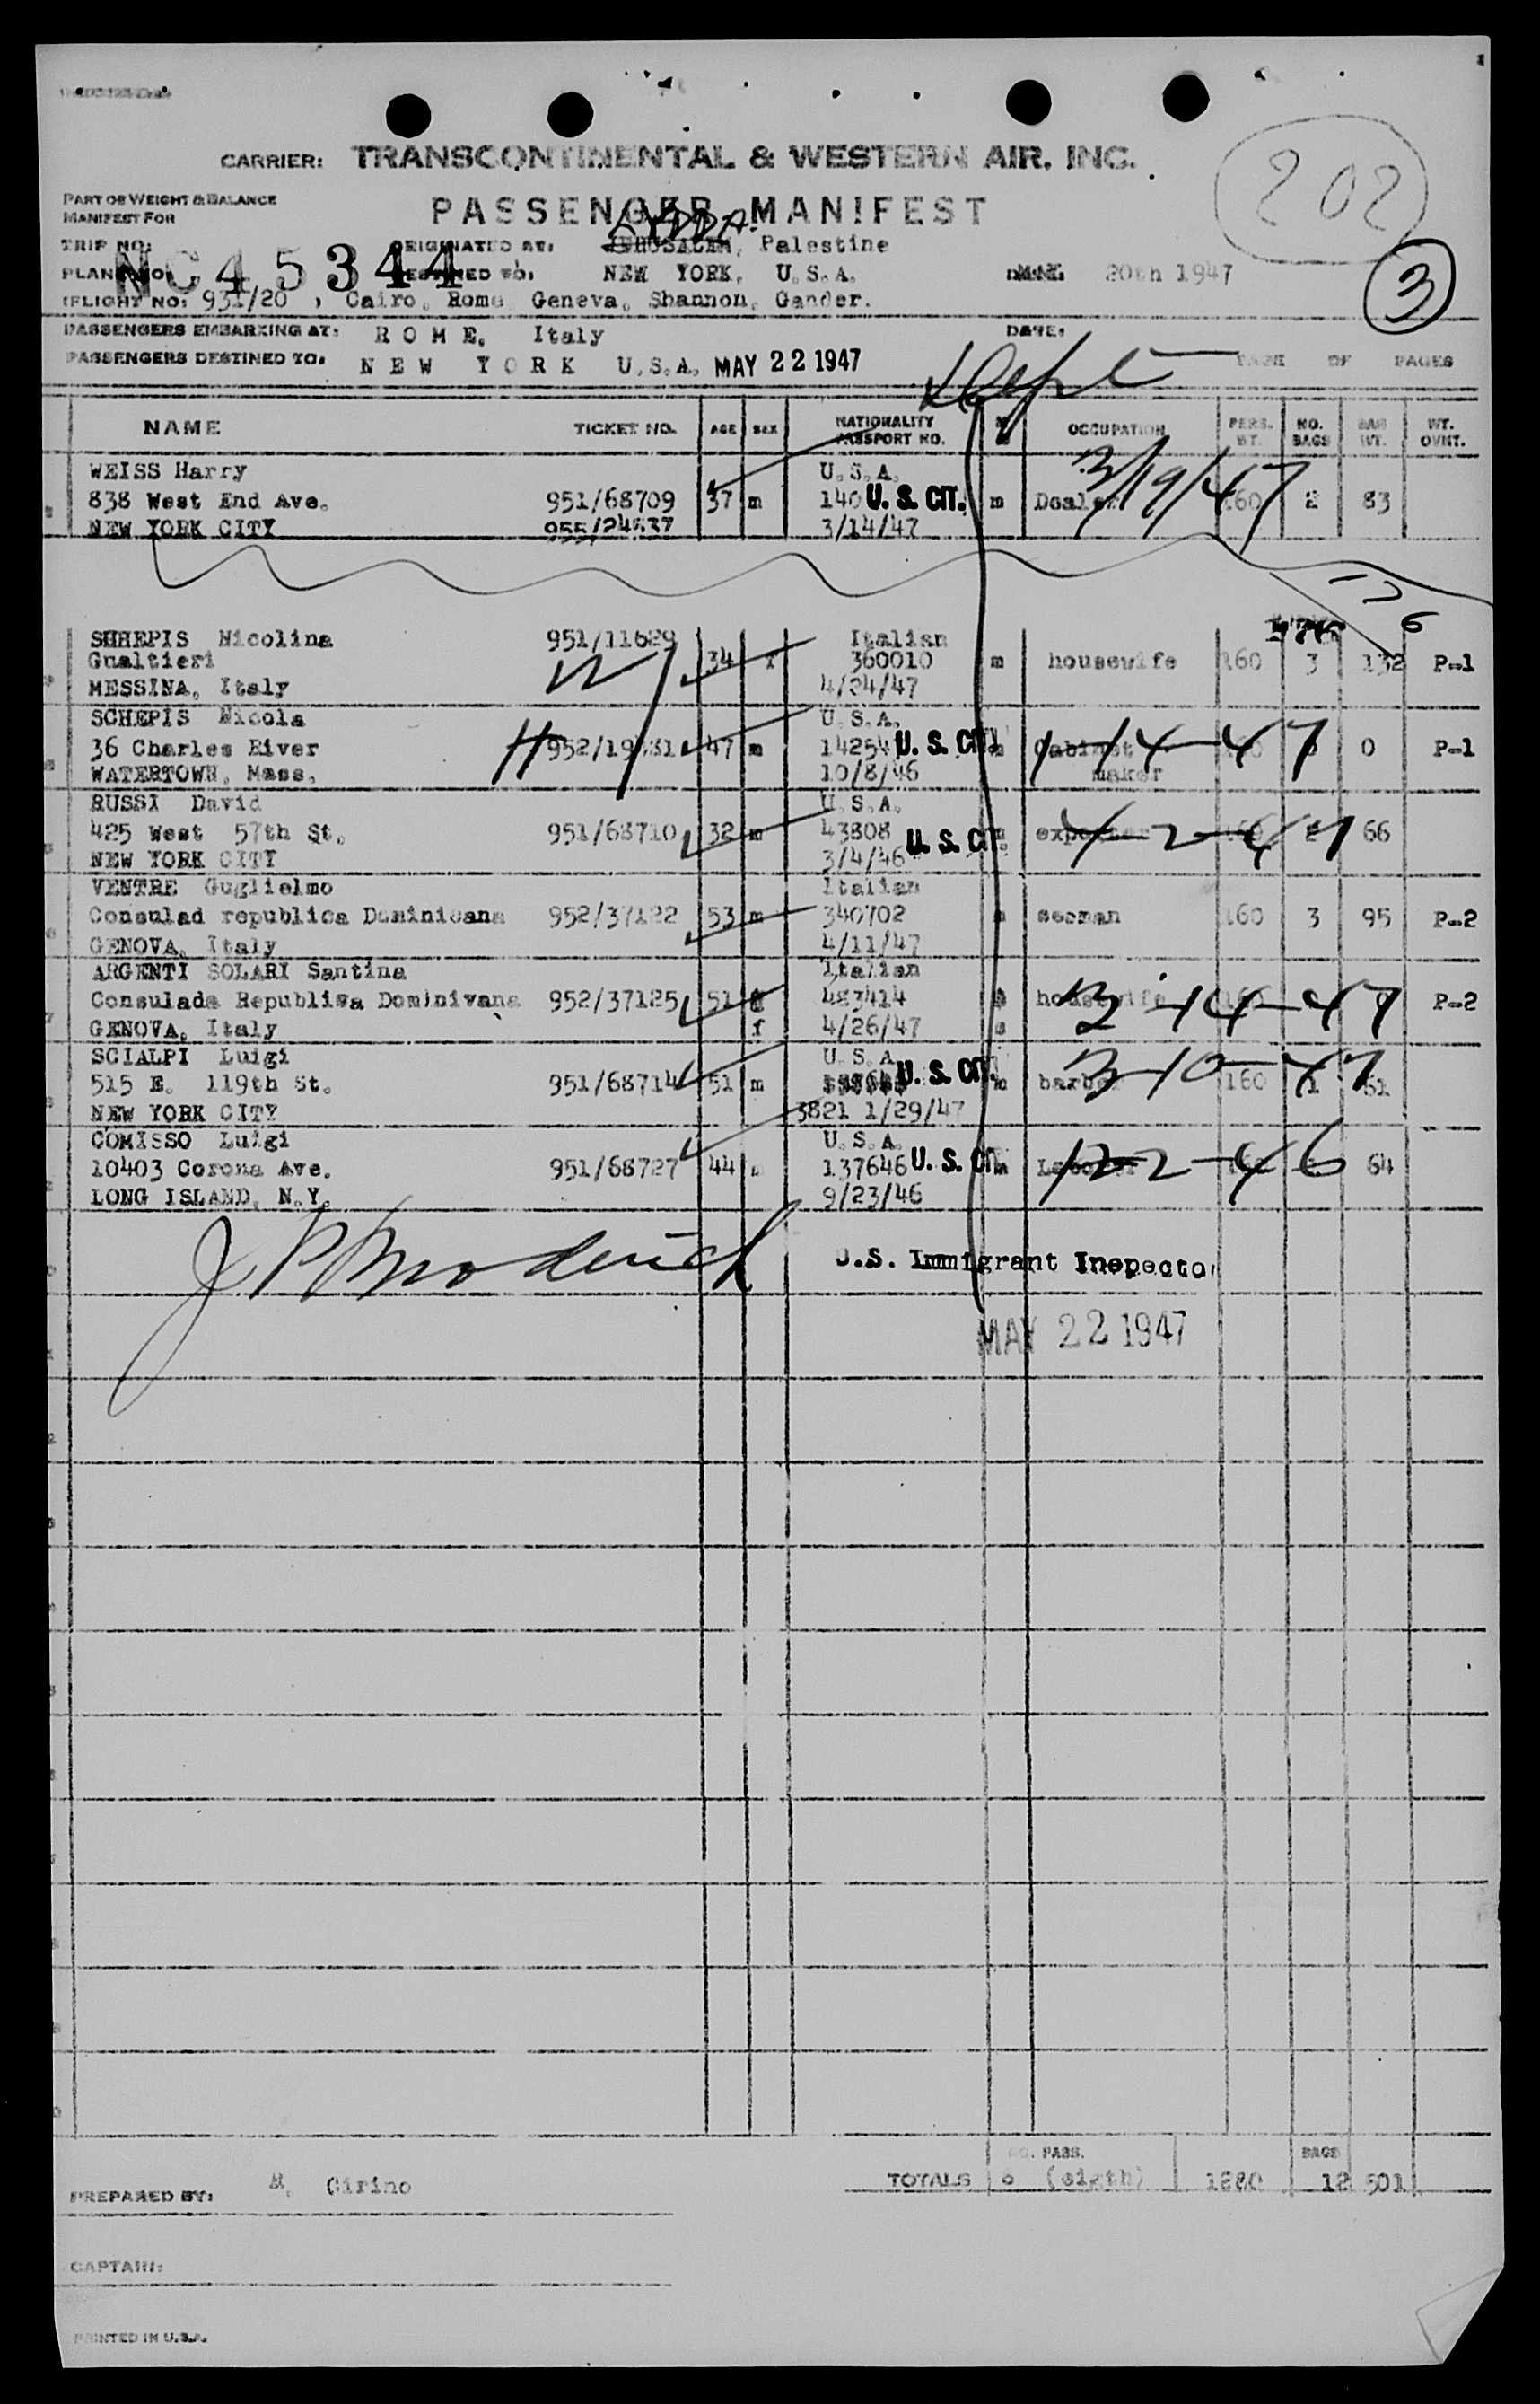 CARRIER: TRANSCONTINENTAL & WESTERN AIR, INC.
202
PART OF WEIGHT & BALANCE
MANIFEST FOR
PASSENGER MANIFEST
LYDDA
TRIP NO: ORIGINATED AT: JERUSALEM, Palestine
PLANE NO: NC45344 DESTINED TO: NEW YORK, U.S.A. 20th 1947
3
(FLIGHT NO: 931/20 , Cairo, Rome Geneva, Shannon, Gander.
PASSENGERS EMBARKING AT: R O M E, Italy DATE:
PASSENGERS DESTINED TO: N E W Y O R K U.S.A. MAY 22 1947 PAGE OF PAGES
NAME TICKET NO. AGE SEX NATIONALITY PASSPORT NO. OCCUPATION PERS. WT. NO. BAGS BAG WT. WT. OVHT.
WEISS Harry U.S.A.
838 West End Ave. 951/68709 37 m 140 U. S. CIT. m Dealer 160 2 83
3/19/47
NEW YORK CITY 955/24537 3/14/47
176
SHHEPIS Nicolina 951/11629 Italian
Gualtieri 34 f 360010 m housewife 160 3 132 P-1
MESSINA, Italy 4/24/47
SCHEPIS Nicola U.S.A.
36 Charles River 952/19431 47 m 14254 U. S. CIT. m Cabinet 0 P-1
1-14-47
WATERTOWN, Mass. 10/8/46 maker
RUSSI David U.S.A.
425 West 57th St. 951/68710 32 m 43808 U. S. CIT. exporter 66
4-2-47
NEW YORK CITY 3/4/46
VENTRE Guglielmo Italian
Consulad republica Dominicana 952/37122 53 m 340702 m seeman 160 3 95 P-2
GENOVA, Italy 4/11/47
ARGENTI SOLARI Santina Italian
Consulada Republiva Dominivana 952/37125 51 483414 housewife P-2
3-14-47
GENOVA, Italy f 4/26/47
SCIALPI Luigi U.S.A.
515 E. 119th St. 951/68714 51 m U. S. CIT. m barber 160 1 61
3-10-47
NEW YORK CITY 3821 1/29/47
COMISSO Luigi U.S.A.
10403 Corona Ave. 951/68727 44 m 137646 U. S. CIT. m Laborer 64
12-2-46
LONG ISLAND, N.Y. 9/23/46
U.S. Immigrant Inspector
MAY 22 1947
NO. PASS. BAGS
TOTALS 8 (eigth) 1280 12 501
PREPARED BY: Cirino
CAPTAIN:
PRINTED IN U.S.A.